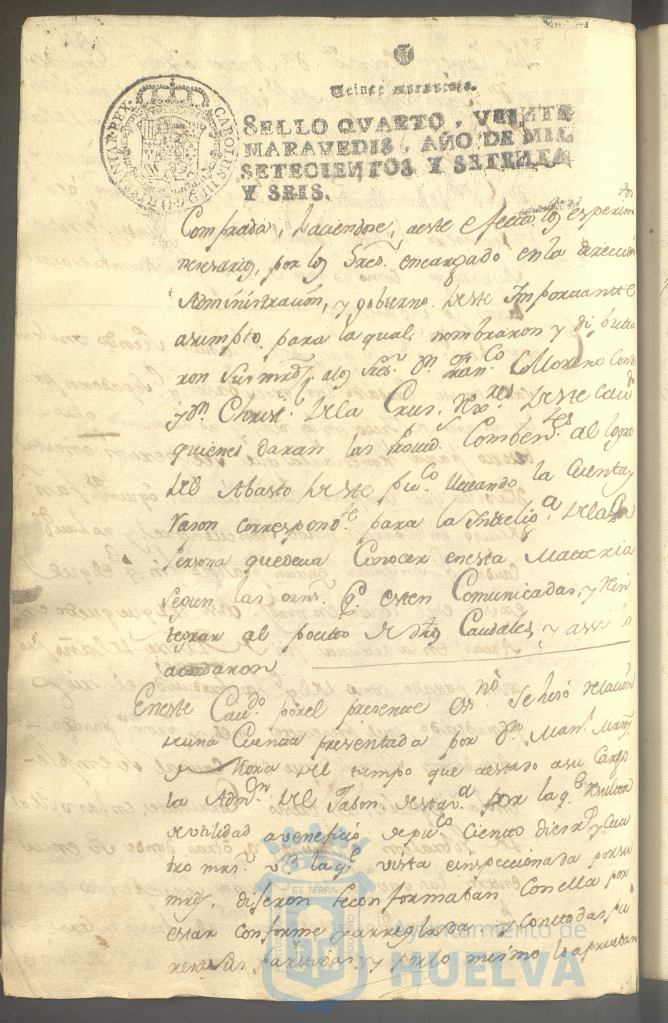 Veinte maravedis.
SELLO QVARTO, VEINTE
MARAVEDIS, AÑO DE MIL
SETECIENTOS Y SETENTA
Y SEIS.
CAROLUS III D G HISPANIAR REX
Comprada, haciendose, a este efecto los esperim
necesarios, por los Sres. encargado en la direccion
Administracion, y gobierno de este Importante
asumpto para la qual, nombraron y diputa
ron sus mrds. a los Sres. Dn. Franco. Moreno
y Dn. Christ. de la Cruz, Rexres. de este Caudo
quienes daran las Provid. Combentes. al logro
del Abasto de este puco. llevando la Cuenta y
razon correspondte. para la Inteliga. de la
persona que deva Conocer en esta Materia
segun las ornes. qe. esten Comunicadas, y Rein
tegrar al posito de dhos Caudales, y assi lo
acordaron
En este Caudo. por el presente Esno. se hizo relacion
de una Cuenta presentada por Dn. Manl.
Mora del tiempo que a estado a su Cargo
la Admon. del Jabon de esta va. por la qe. resulta
de utilidad a veneficio de puco. Ciento diez rs. y Cua
tro mrs. vn. la qe. vista e inspeccionada por su
mrds. dijeron se conformaban Con ella por
estar conforme y arreglada y con todas su
partidas, y por lo mismo la aprueban
ET TERRAE
Ayuntamiento de
HUELVA